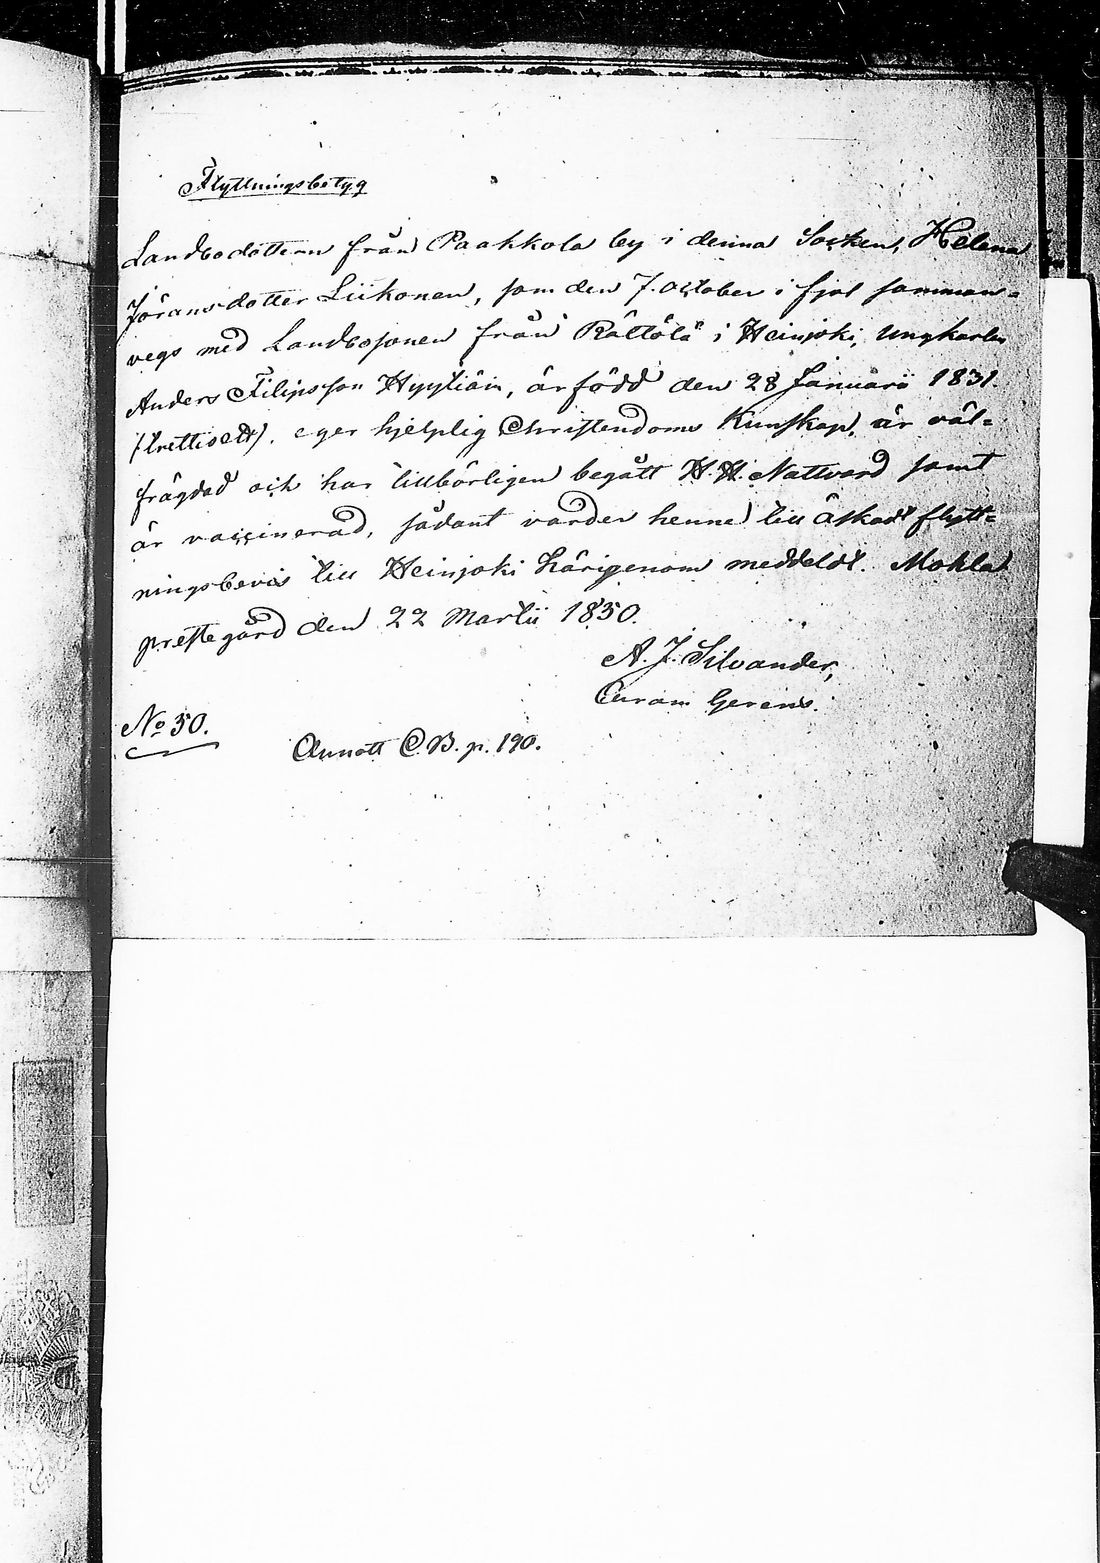 Flyttningsbetyg
Landbodottern från Paakkola by i denna Socken, Helena
Jöransdotter Liikonen, som den 7. october i fjol samman-
vegs med Landbosonen från Rättölä i Heinjoki, ungkarlen
Anders Filipsson Hyytiäin, är född den 28 Januarii 1831.
(trettioett), eger hjelplig Christendoms Kunskap, är väl-
frägdad och har tillbörligen begått H. H. Nattvard samt
är vaccinerad, sådant varder henne till äskadt flytt-
ningsbevis till Heinjoki härigenom meddeldt. Mohla
prestegård den 22 Martii 1850.
A. J. Silvander,
Curam Gerens.
No 50.
Annott C. B. p. 190.